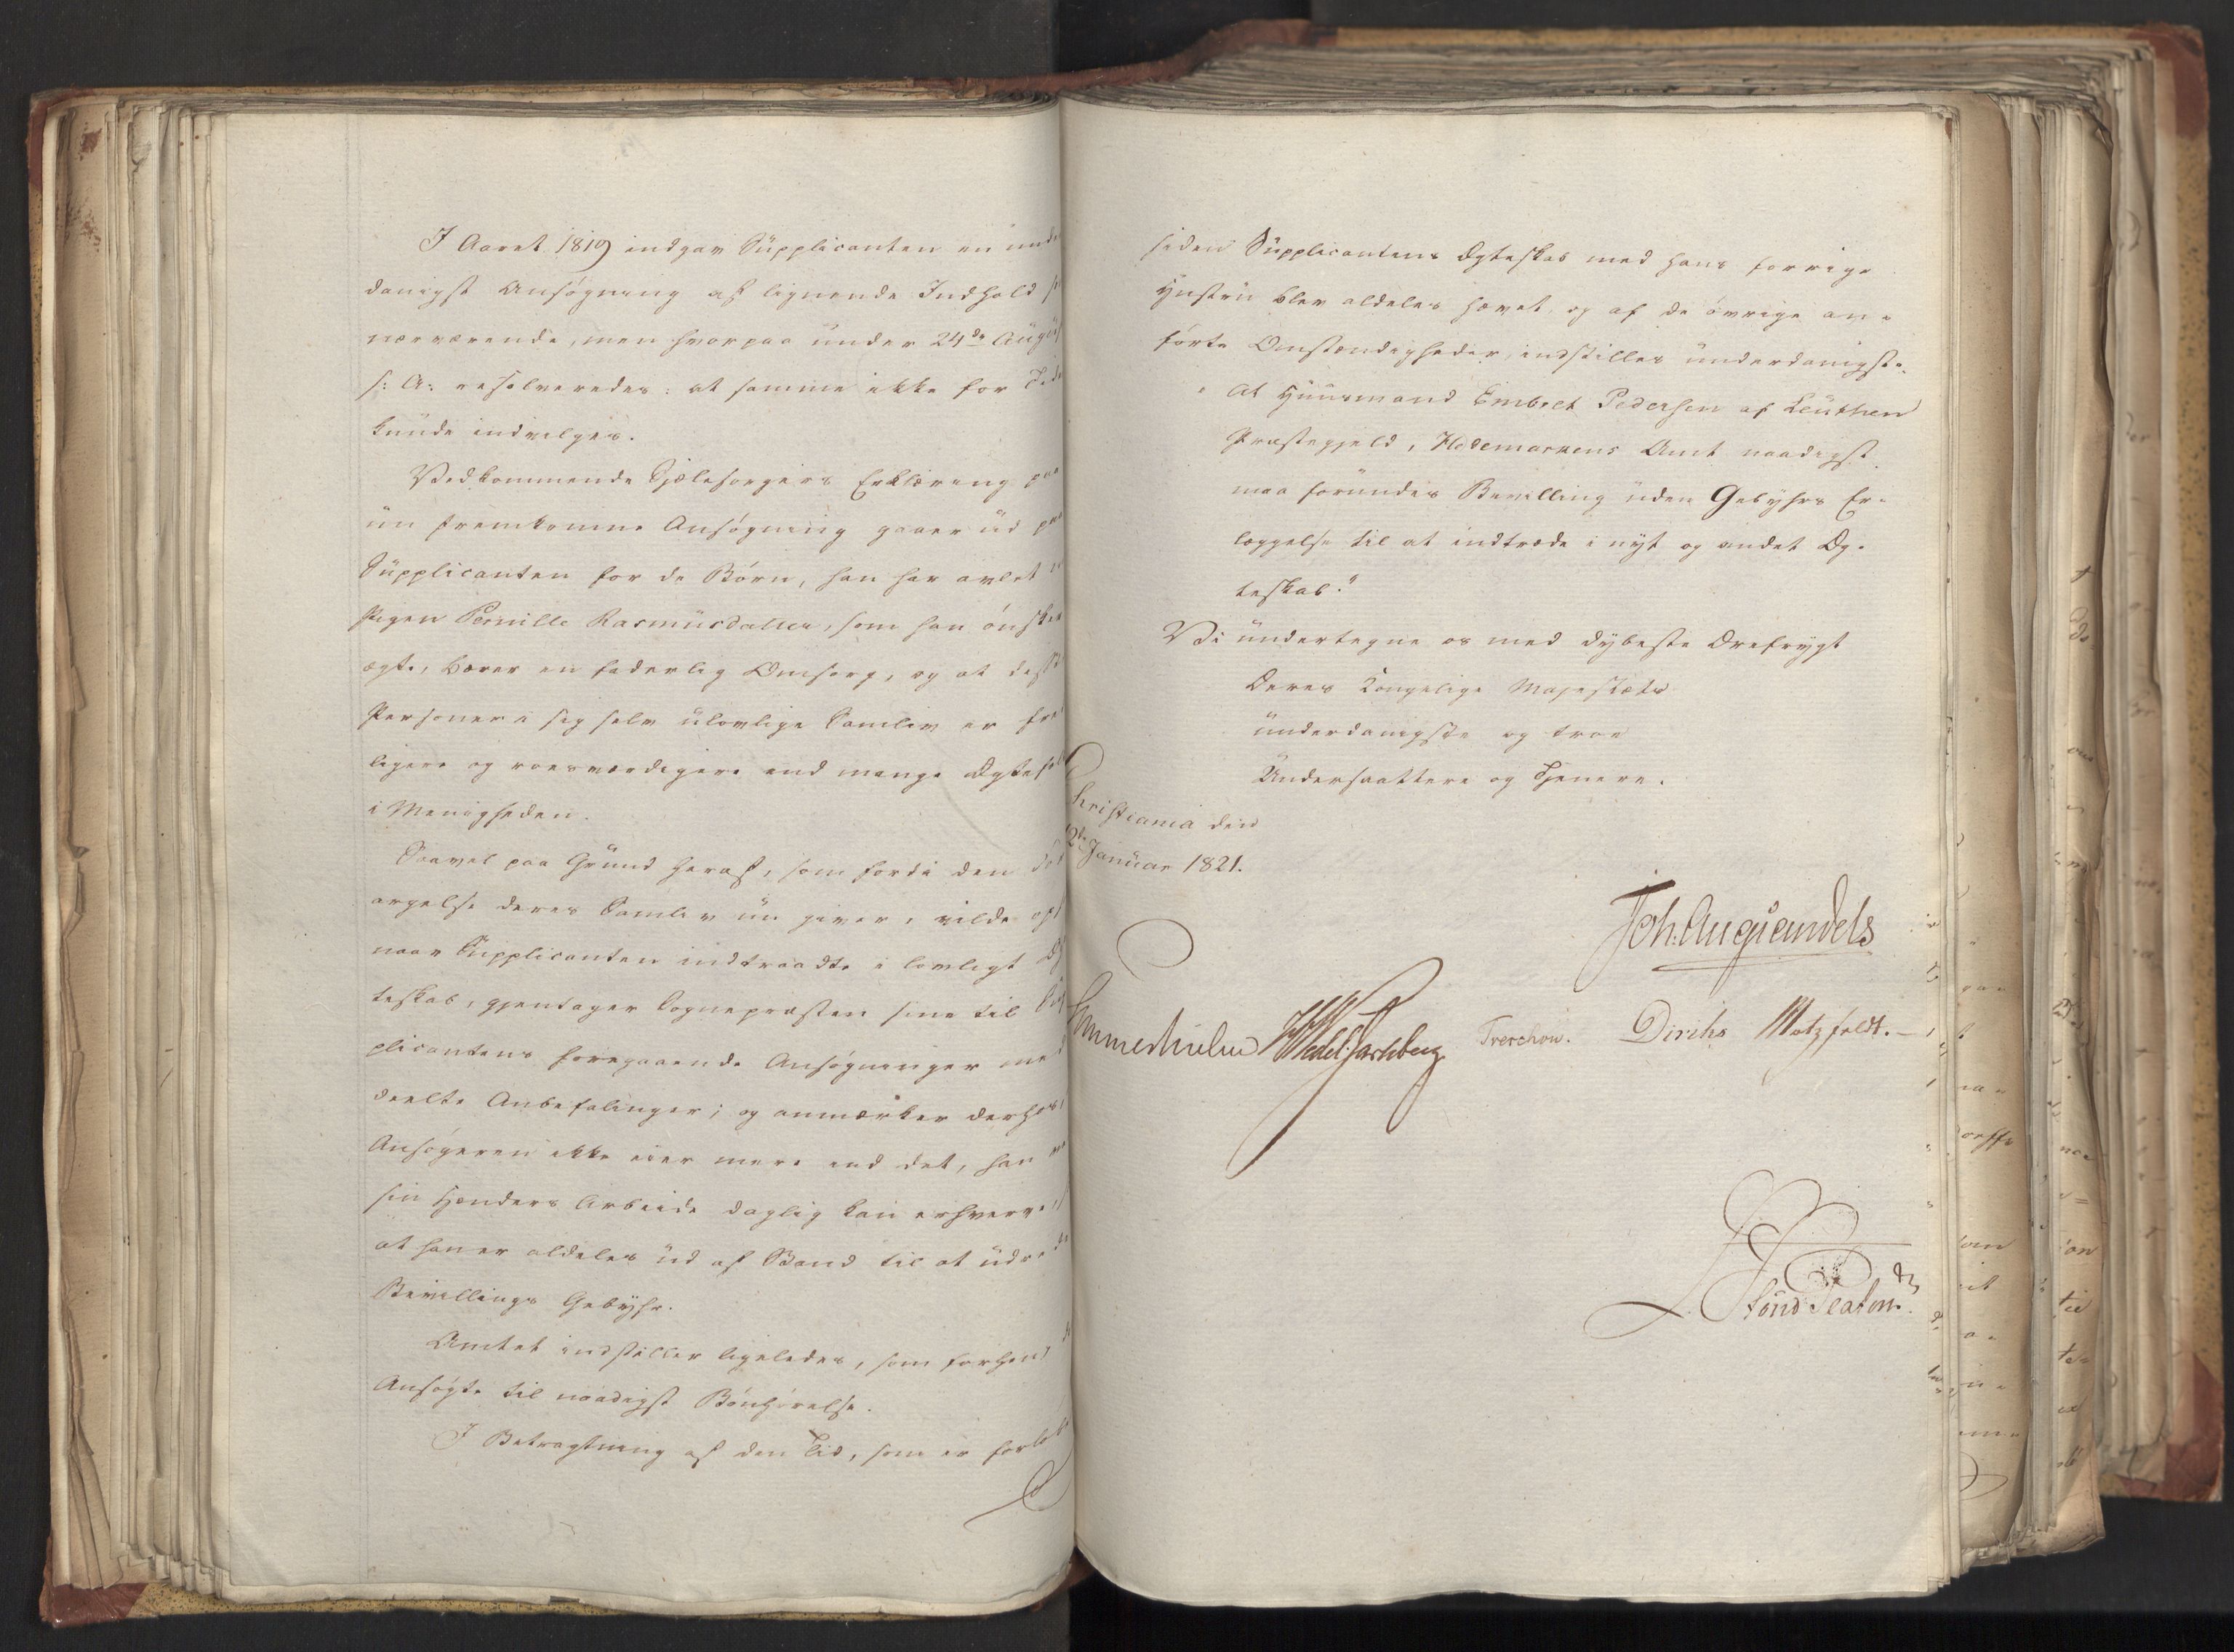 I Aaret 1819 indgav Supplicanten en under
danigst Ansøgning af lignende Indhold som
nærværende, men hvorpaa under 24de August
s: A: resolveredes: at samme ikke for Tiden
kunde indvilges.
Vedkommende Sjælesørgers Erklæring paa
nu fremkomne Ansøgning gaaer ud paa
Supplicanten for de Børn, han har avlet
Pigen Pernille Rasmusdatter, som han ønsker
ægte, bærer en faderlig Omsorg, og at disse
Personer i sig selv ulovlige Samliv er
ligere og roesværdigere end mange Ægtefolk
i Menigheden.
Saavel paa Grund heraf, som fordi den
argelse deres Samliv nu giver, vilde
naar Supplicanten indtraadte i lovligt Æg
teskab, gjentager Sognepræsten sine til Sup
plicantens foregaaende Ansøgninger med
deelte Anbefalinger; og anmærker derhos,
Ansøgeren ikke eier mere end det, han
sin Hænders Arbeide daglig kan erhverve,
at han er aldeles ud af Stand til at udrede
Bevillings Gebyhr.
Amtet indstiller ligeledes, som forhen,
Ansøgte til naadigst Bønhørelse.
I Betragtning af den Tid, som er forløbet
siden Supplicantens Ægteskab med hans forrige
Hustru blev aldeles hævet og af de øvrige an-
førte Omstændigheder, indstilles underdanigst:
"At Huusmand Embret Pedersen af Leuthen
Præstegjeld, Hedemarkens Amt naadigst
maa forundes Bevilling uden Gebyhrs Er-
læggelse til at indtræde i nyt og andet Æg-
teskab."
Vi undertegne os med dybeste Ærefrygt
Deres Kongelige Majestæts
underdanigste og troe
Undersaattere og Tjenere.
Christiania den
12te Januar 1821.
Joh: Aug: Sandels
Sommerhielm HWedel Jarlsberg Treschow. Diriks Motzfeldt.